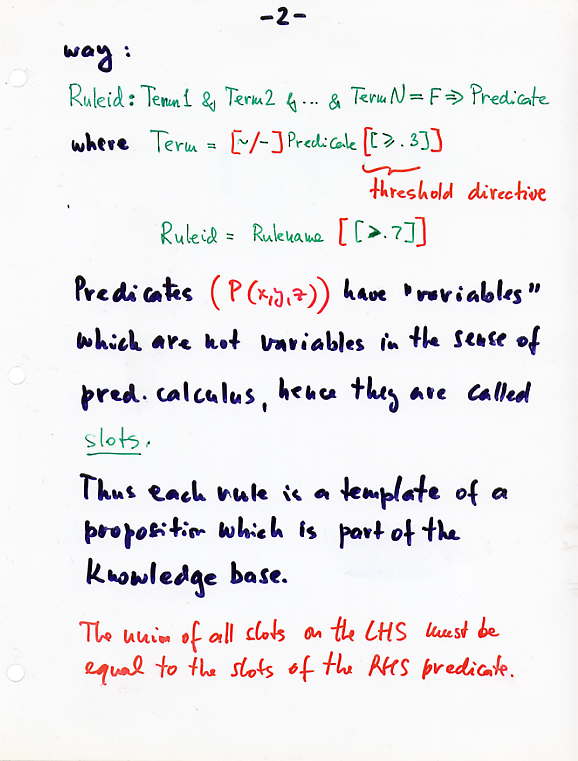 -2-
way:
Ruleid: Term1 & Term2 & ... & TermN = F => Predicate
where Term = [~/-] Predicate [[≥.3]]
threshold directive
Ruleid = Rulename [[≥.7]]
Predicates (P(x,y,z)) have "variables"
which are not variables in the sense of
pred. calculus, hence they are called
slots.
Thus each rule is a template of a
proposition which is part of the
Knowledge base.
The union of all slots on the LHS must be
equal to the slots of the RHS predicate.